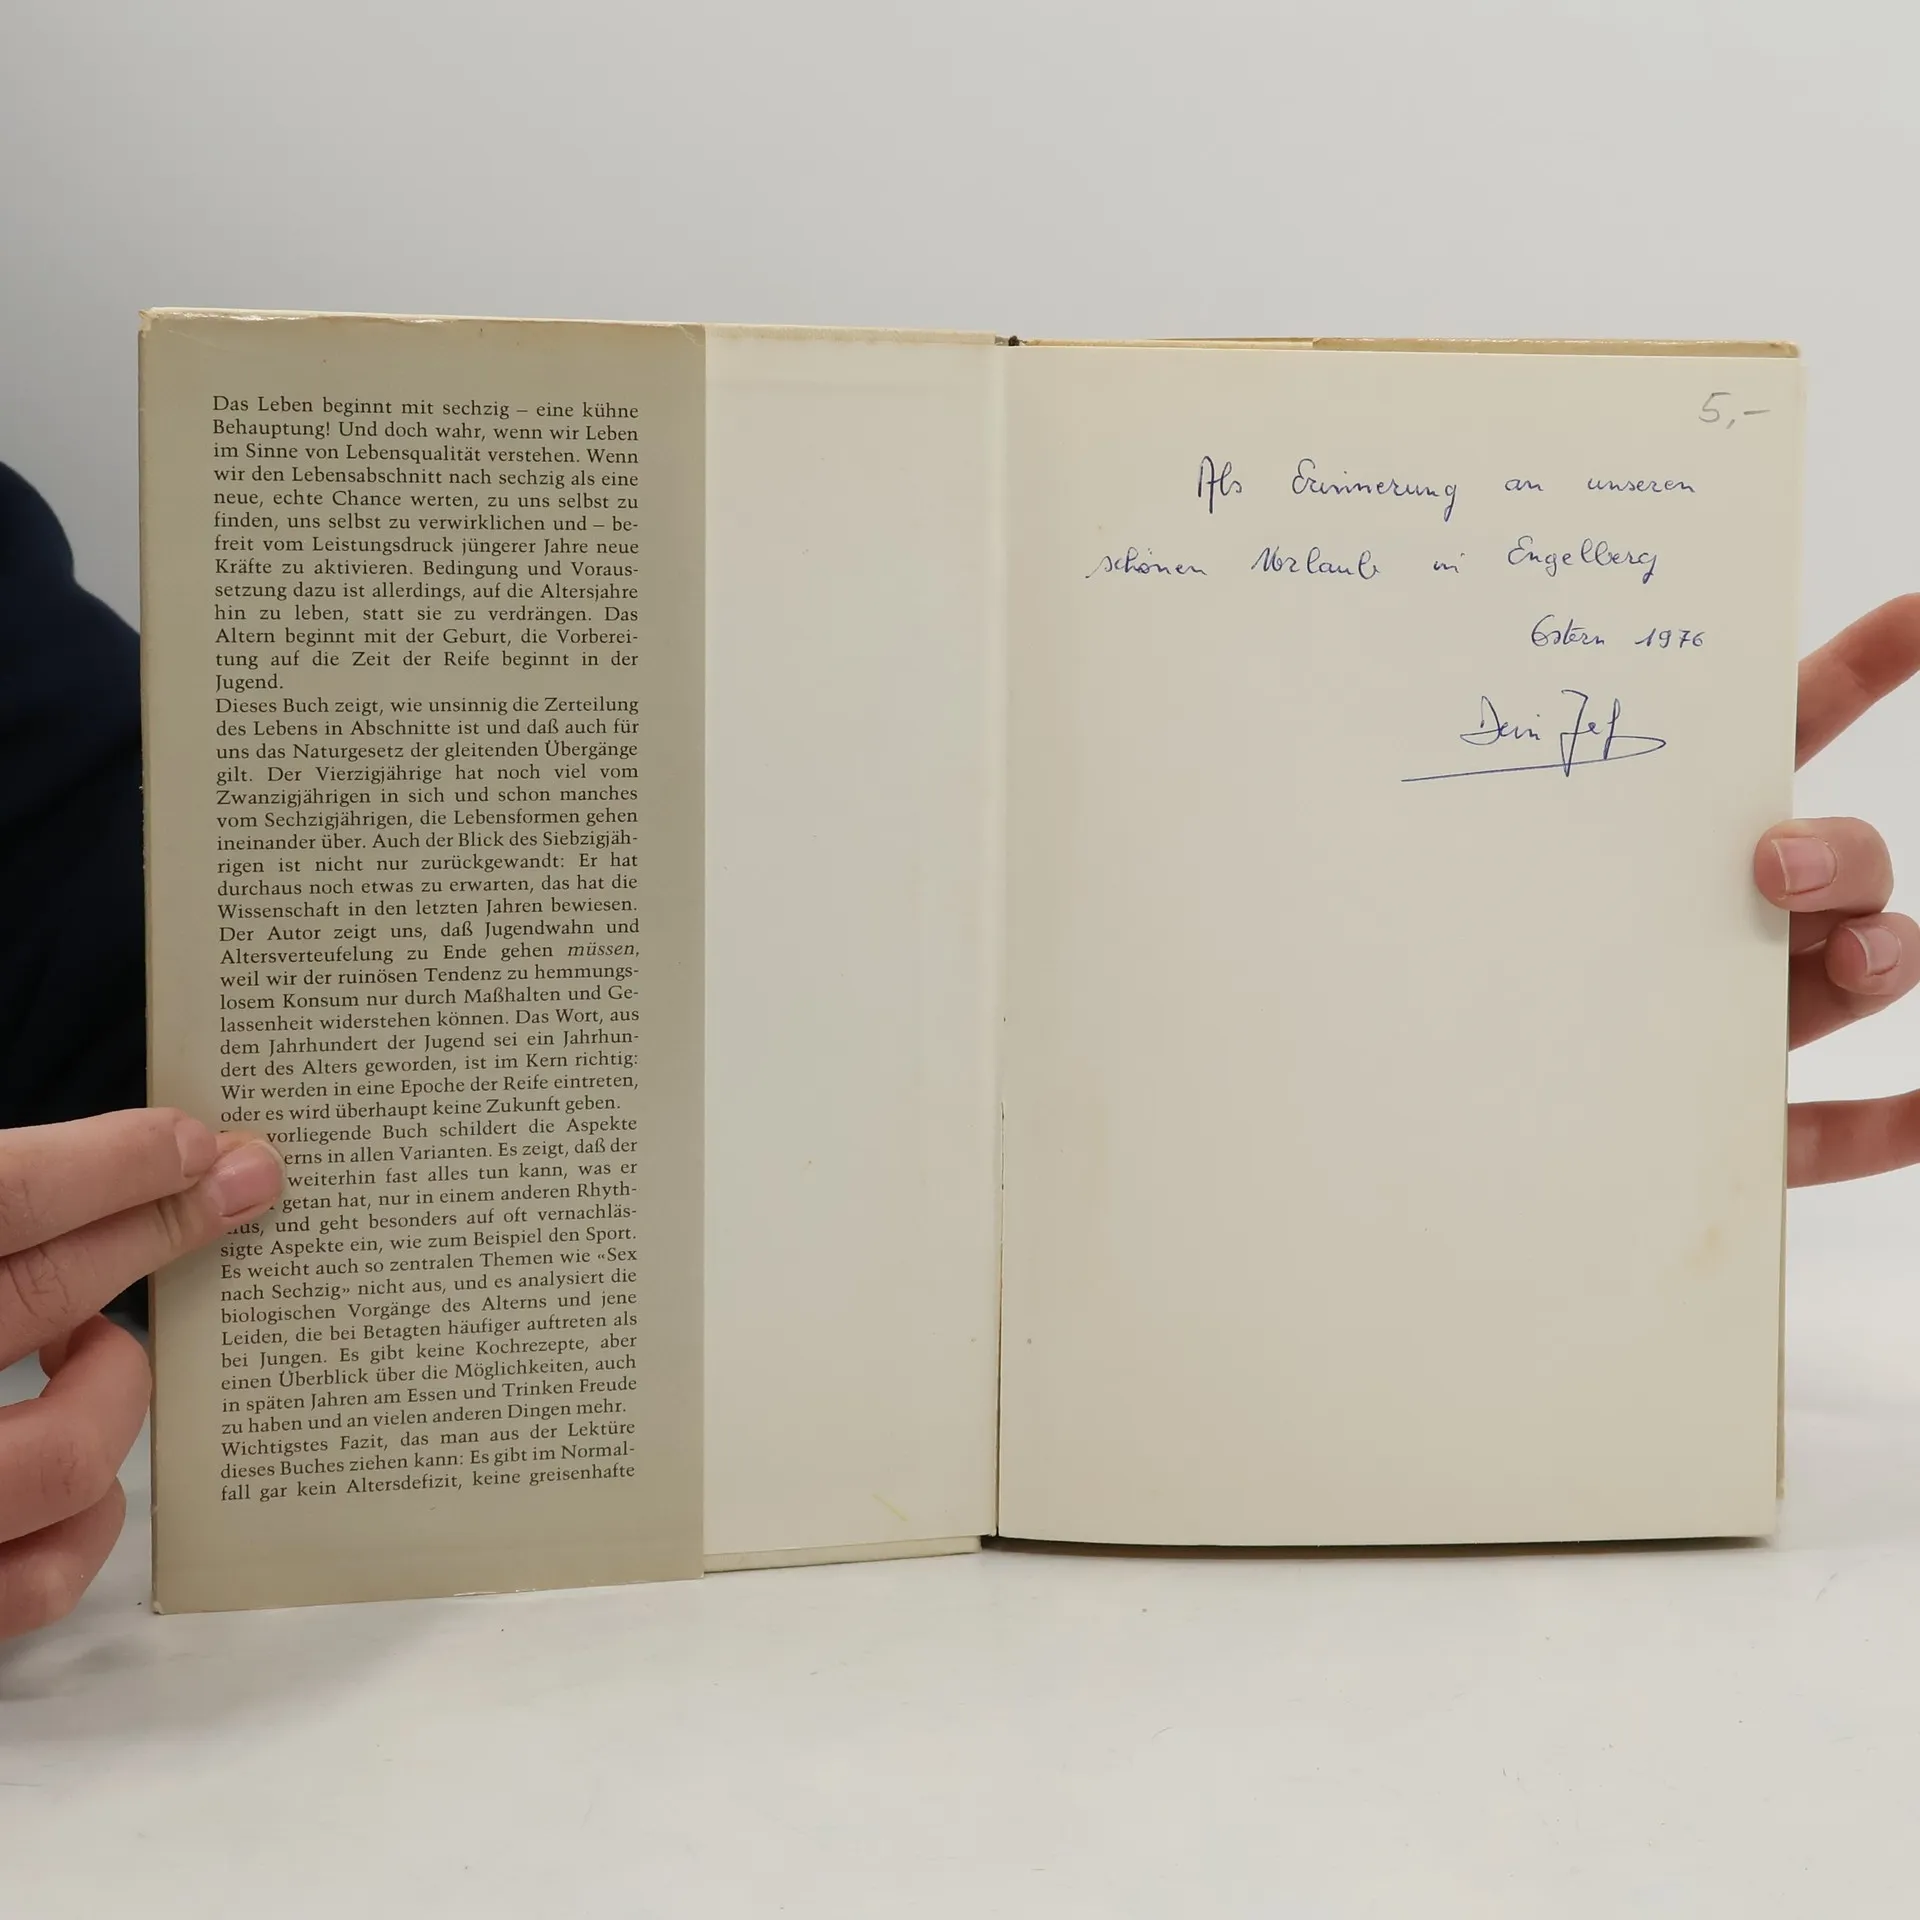 Das Leben beginnt mit sechzig – eine kühne
Behauptung! Und doch wahr, wenn wir Leben
im Sinne von Lebensqualität verstehen. Wenn
wir den Lebensabschnitt nach sechzig als eine
neue, echte Chance werten, zu uns selbst zu
finden, uns selbst zu verwirklichen und – be-
freit vom Leistungsdruck jüngerer Jahre neue
Kräfte zu aktivieren. Bedingung und Voraus-
setzung dazu ist allerdings, auf die Altersjahre
hin zu leben, statt sie zu verdrängen. Das
Altern beginnt mit der Geburt, die Vorberei-
tung auf die Zeit der Reife beginnt in der
Jugend.
Dieses Buch zeigt, wie unsinnig die Zerteilung
des Lebens in Abschnitte ist und daß auch für
uns das Naturgesetz der gleitenden Übergänge
gilt. Der Vierzigjährige hat noch viel vom
Zwanzigjährigen in sich und schon manches
vom Sechzigjährigen, die Lebensformen gehen
ineinander über. Auch der Blick des Siebzigjäh-
rigen ist nicht nur zurückgewandt: Er hat
durchaus noch etwas zu erwarten, das hat die
Wissenschaft in den letzten Jahren bewiesen.
Der Autor zeigt uns, daß Jugendwahn und
Altersverteufelung zu Ende gehen müssen,
weil wir der ruinösen Tendenz zu hemmungs-
losem Konsum nur durch Maßhalten und Ge-
lassenheit widerstehen können. Das Wort, aus
dem Jahrhundert der Jugend sei ein Jahrhun-
dert des Alters geworden, ist im Kern richtig:
Wir werden in eine Epoche der Reife eintreten,
oder es wird überhaupt keine Zukunft geben.
vorliegende Buch schildert die Aspekte
erns in allen Varianten. Es zeigt, daß der
weiterhin fast alles tun kann, was er
getan hat, nur in einem anderen Rhyth-
mus, und geht besonders auf oft vernachläs-
sigte Aspekte ein, wie zum Beispiel den Sport.
Es weicht auch so zentralen Themen wie «Sex
nach Sechzig» nicht aus, und es analysiert die
biologischen Vorgänge des Alterns und jene
Leiden, die bei Betagten häufiger auftreten als
bei Jungen. Es gibt keine Kochrezepte, aber
einen Überblick über die Möglichkeiten, auch
in späten Jahren am Essen und Trinken Freude
zu haben und an vielen anderen Dingen mehr.
Wichtigstes Fazit, das man aus der Lektüre
dieses Buches ziehen kann: Es gibt im Normal-
fall gar kein Altersdefizit, keine greisenhafte
5,-
Als Erinnerung an unseren
schönen Urlaub in Engelberg
Ostern 1976
Dein Jef